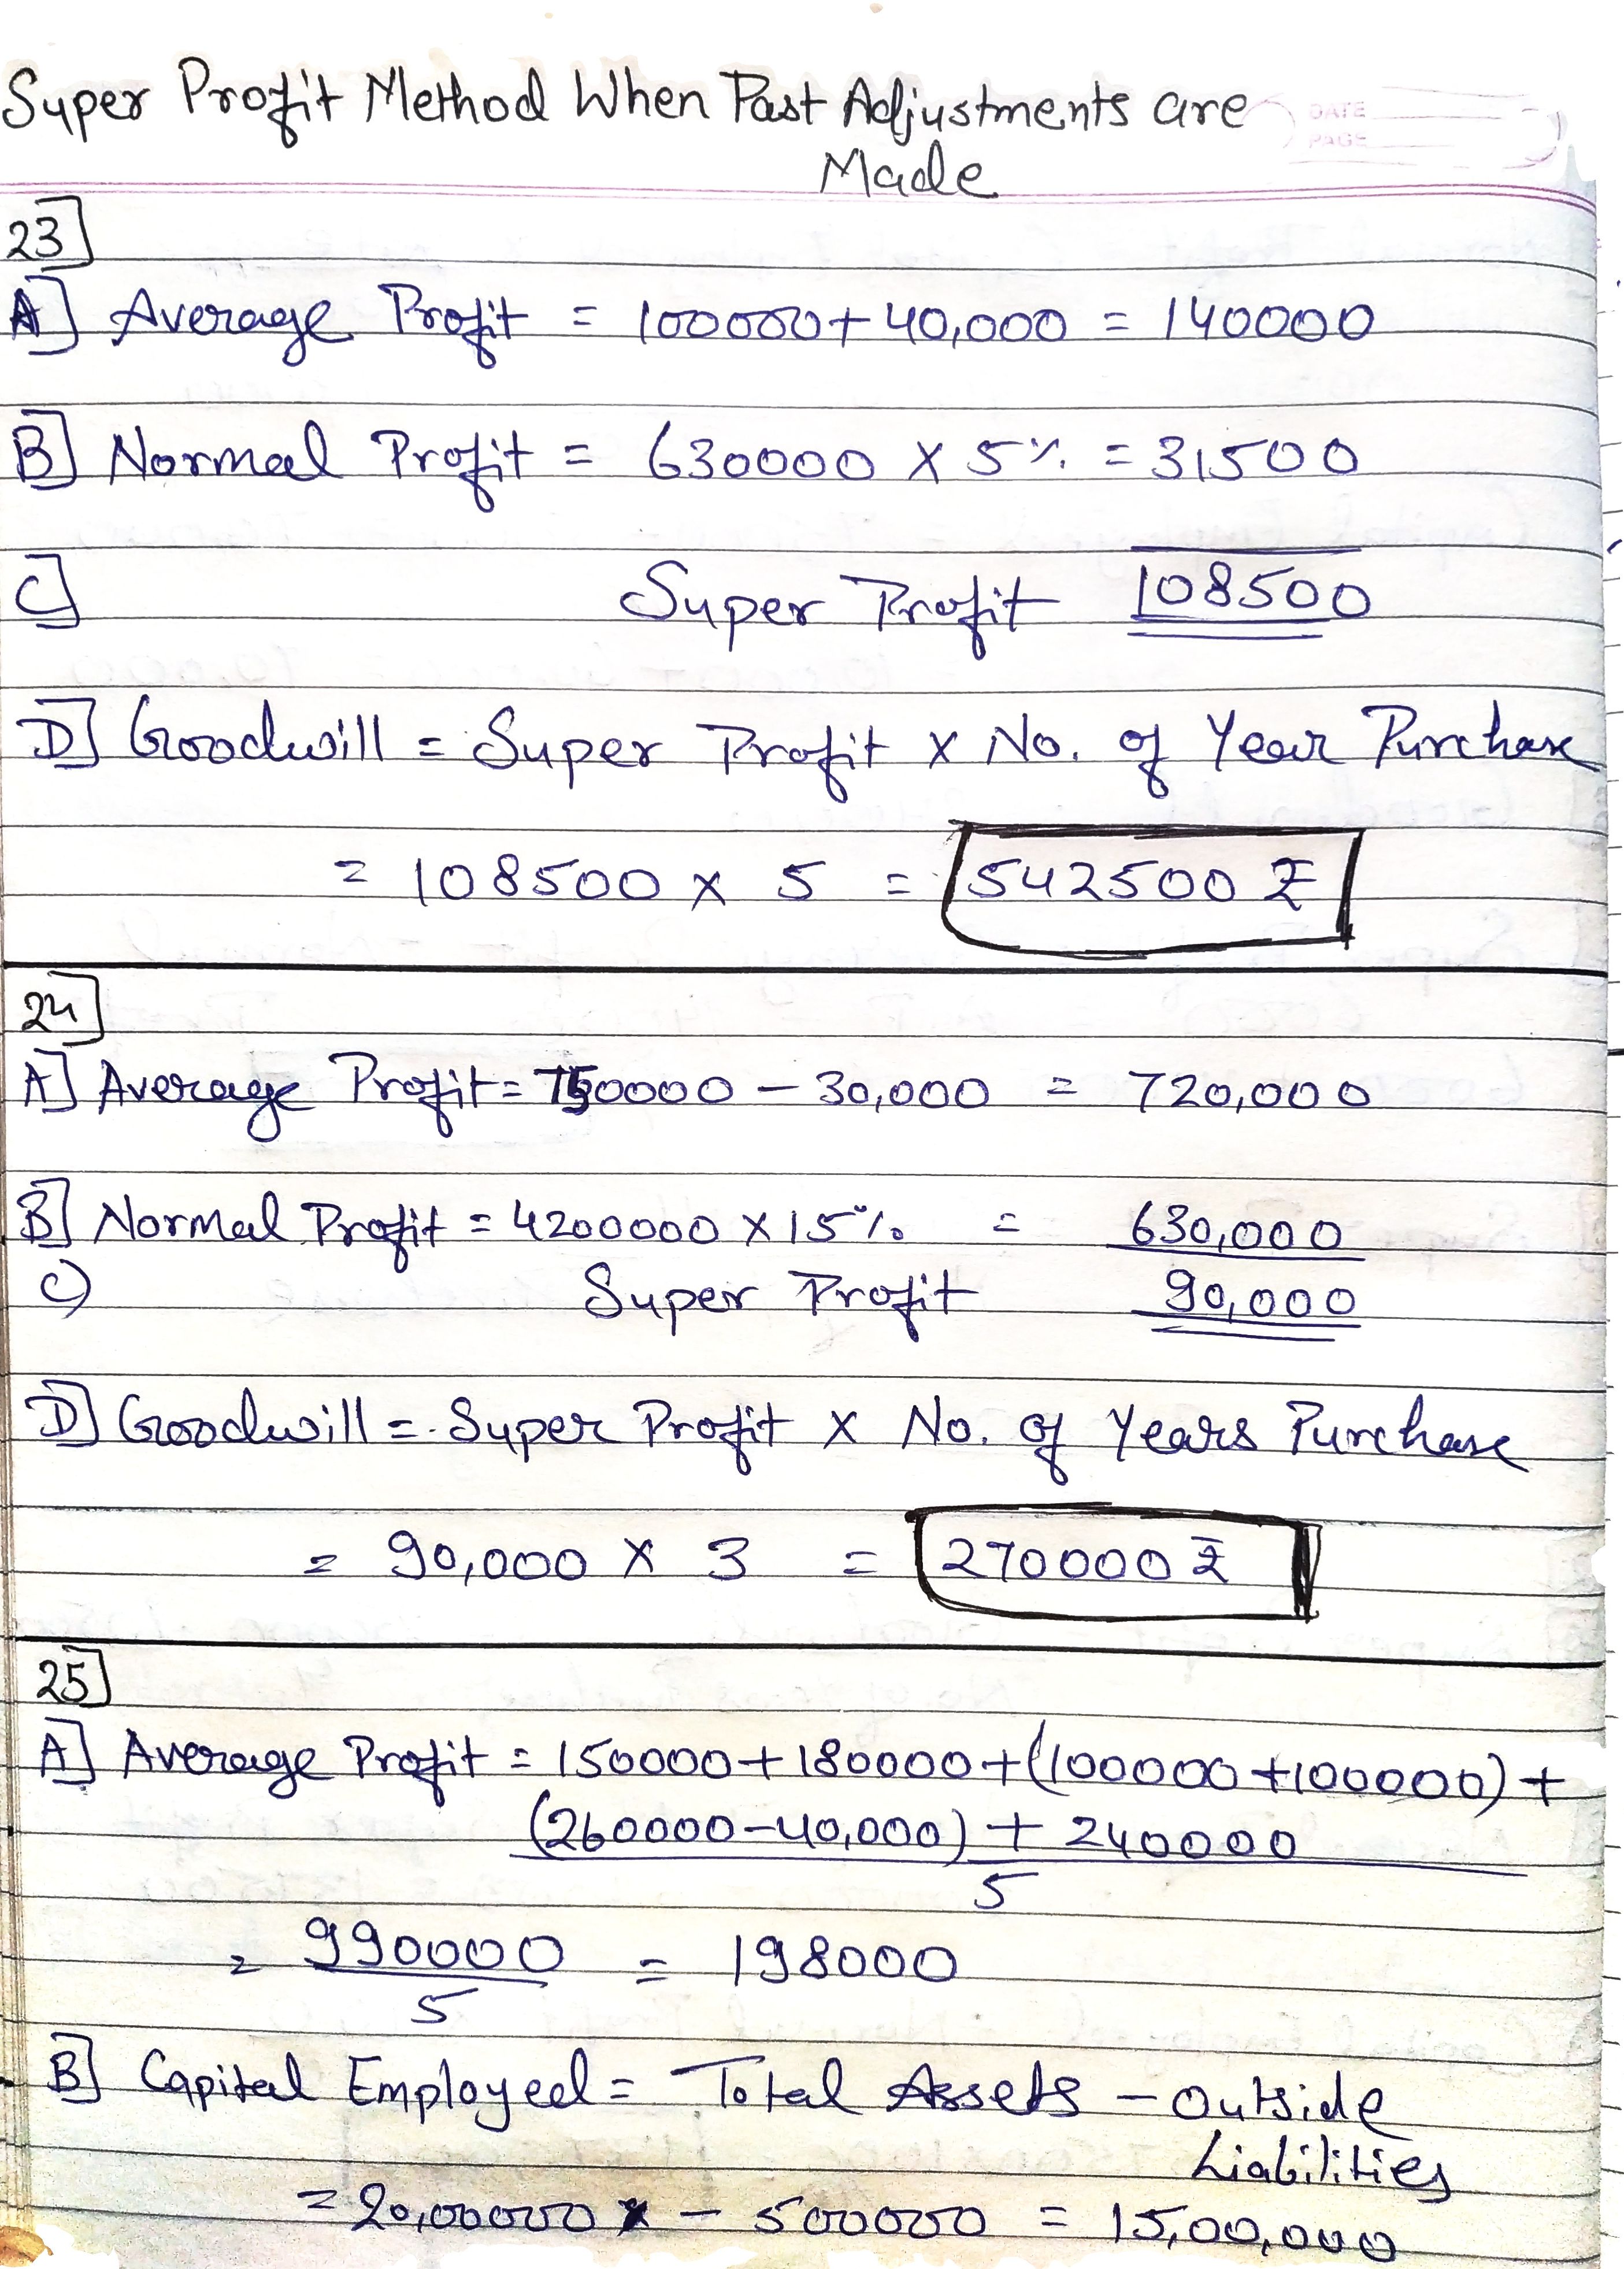 Super Profit Method When Past Adjustments are
Made
DATE
PAGE
23]
A] Average Profit = 100000 + 40,000 = 140000
B] Normal Profit = 630000 x 5% = 31500
C] Super Profit 108500
D] Goodwill = Super Profit x No. of Year Purchase
= 108500 x 5 = 542500 ₹
24]
A] Average Profit = 750000 - 30,000 = 720,000
B] Normal Profit = 4200000 x 15% = 630,000
C) Super Profit 90,000
D] Goodwill = Super Profit x No. of Years Purchase
= 90,000 x 3 = 270000 ₹
25]
A] Average Profit = 150000 + 180000 + (100000 + 100000) +
(260000 - 40,000) + 240000
5
= 990000 = 198000
5
B] Capital Employed = Total Assets - Outside
Liabilities
= 20,00000 - 500000 = 15,00,000